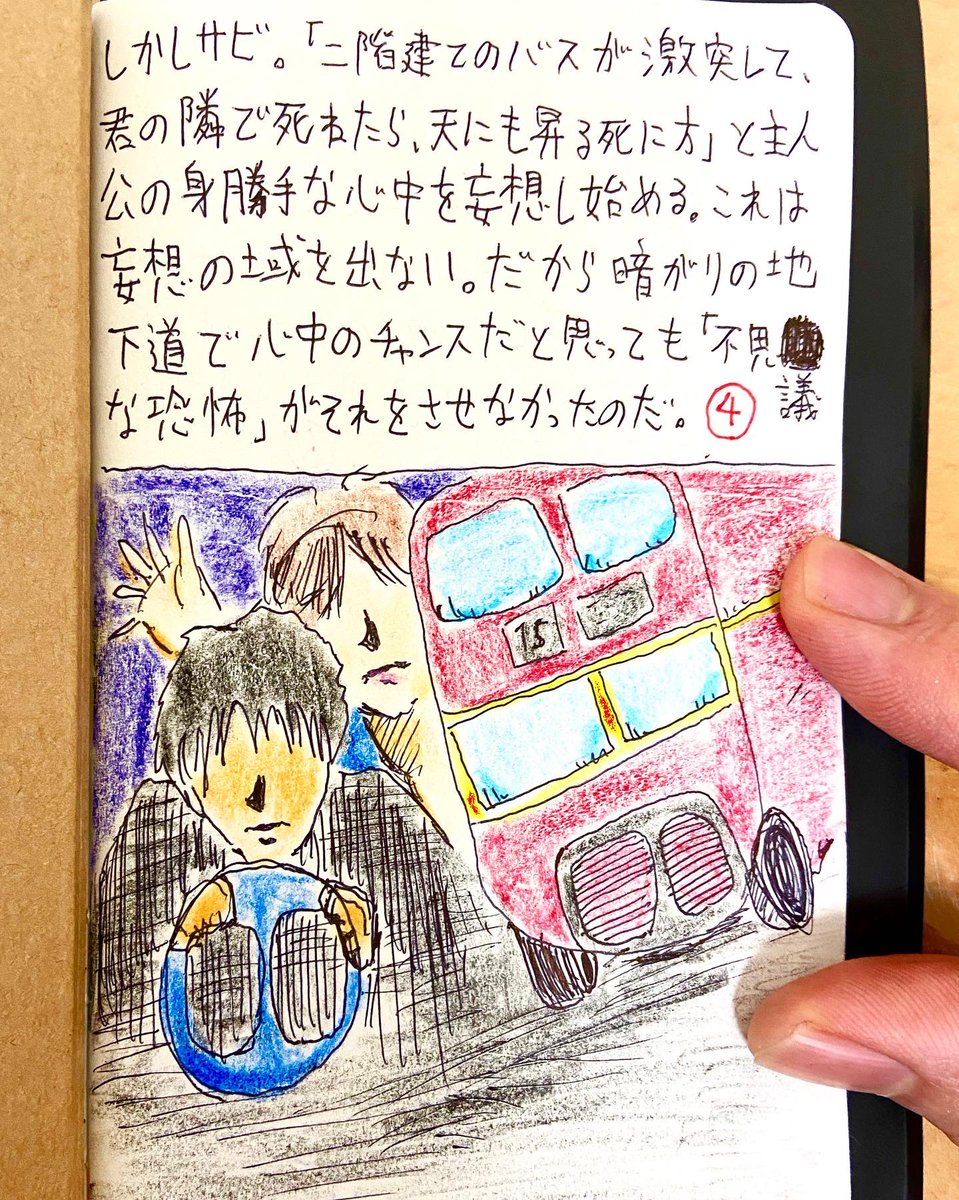 しかしサビ。「二階建てのバスが激突して、
君の隣で死ねたら、天にも昇る死に方」と主人
公の身勝手な心中を妄想し始める。これは
妄想の域を出ない。だから暗がりの地
下道で心中のチャンスだと思っても「不思議
な恐怖」がそれをさせなかったのだ。④
15